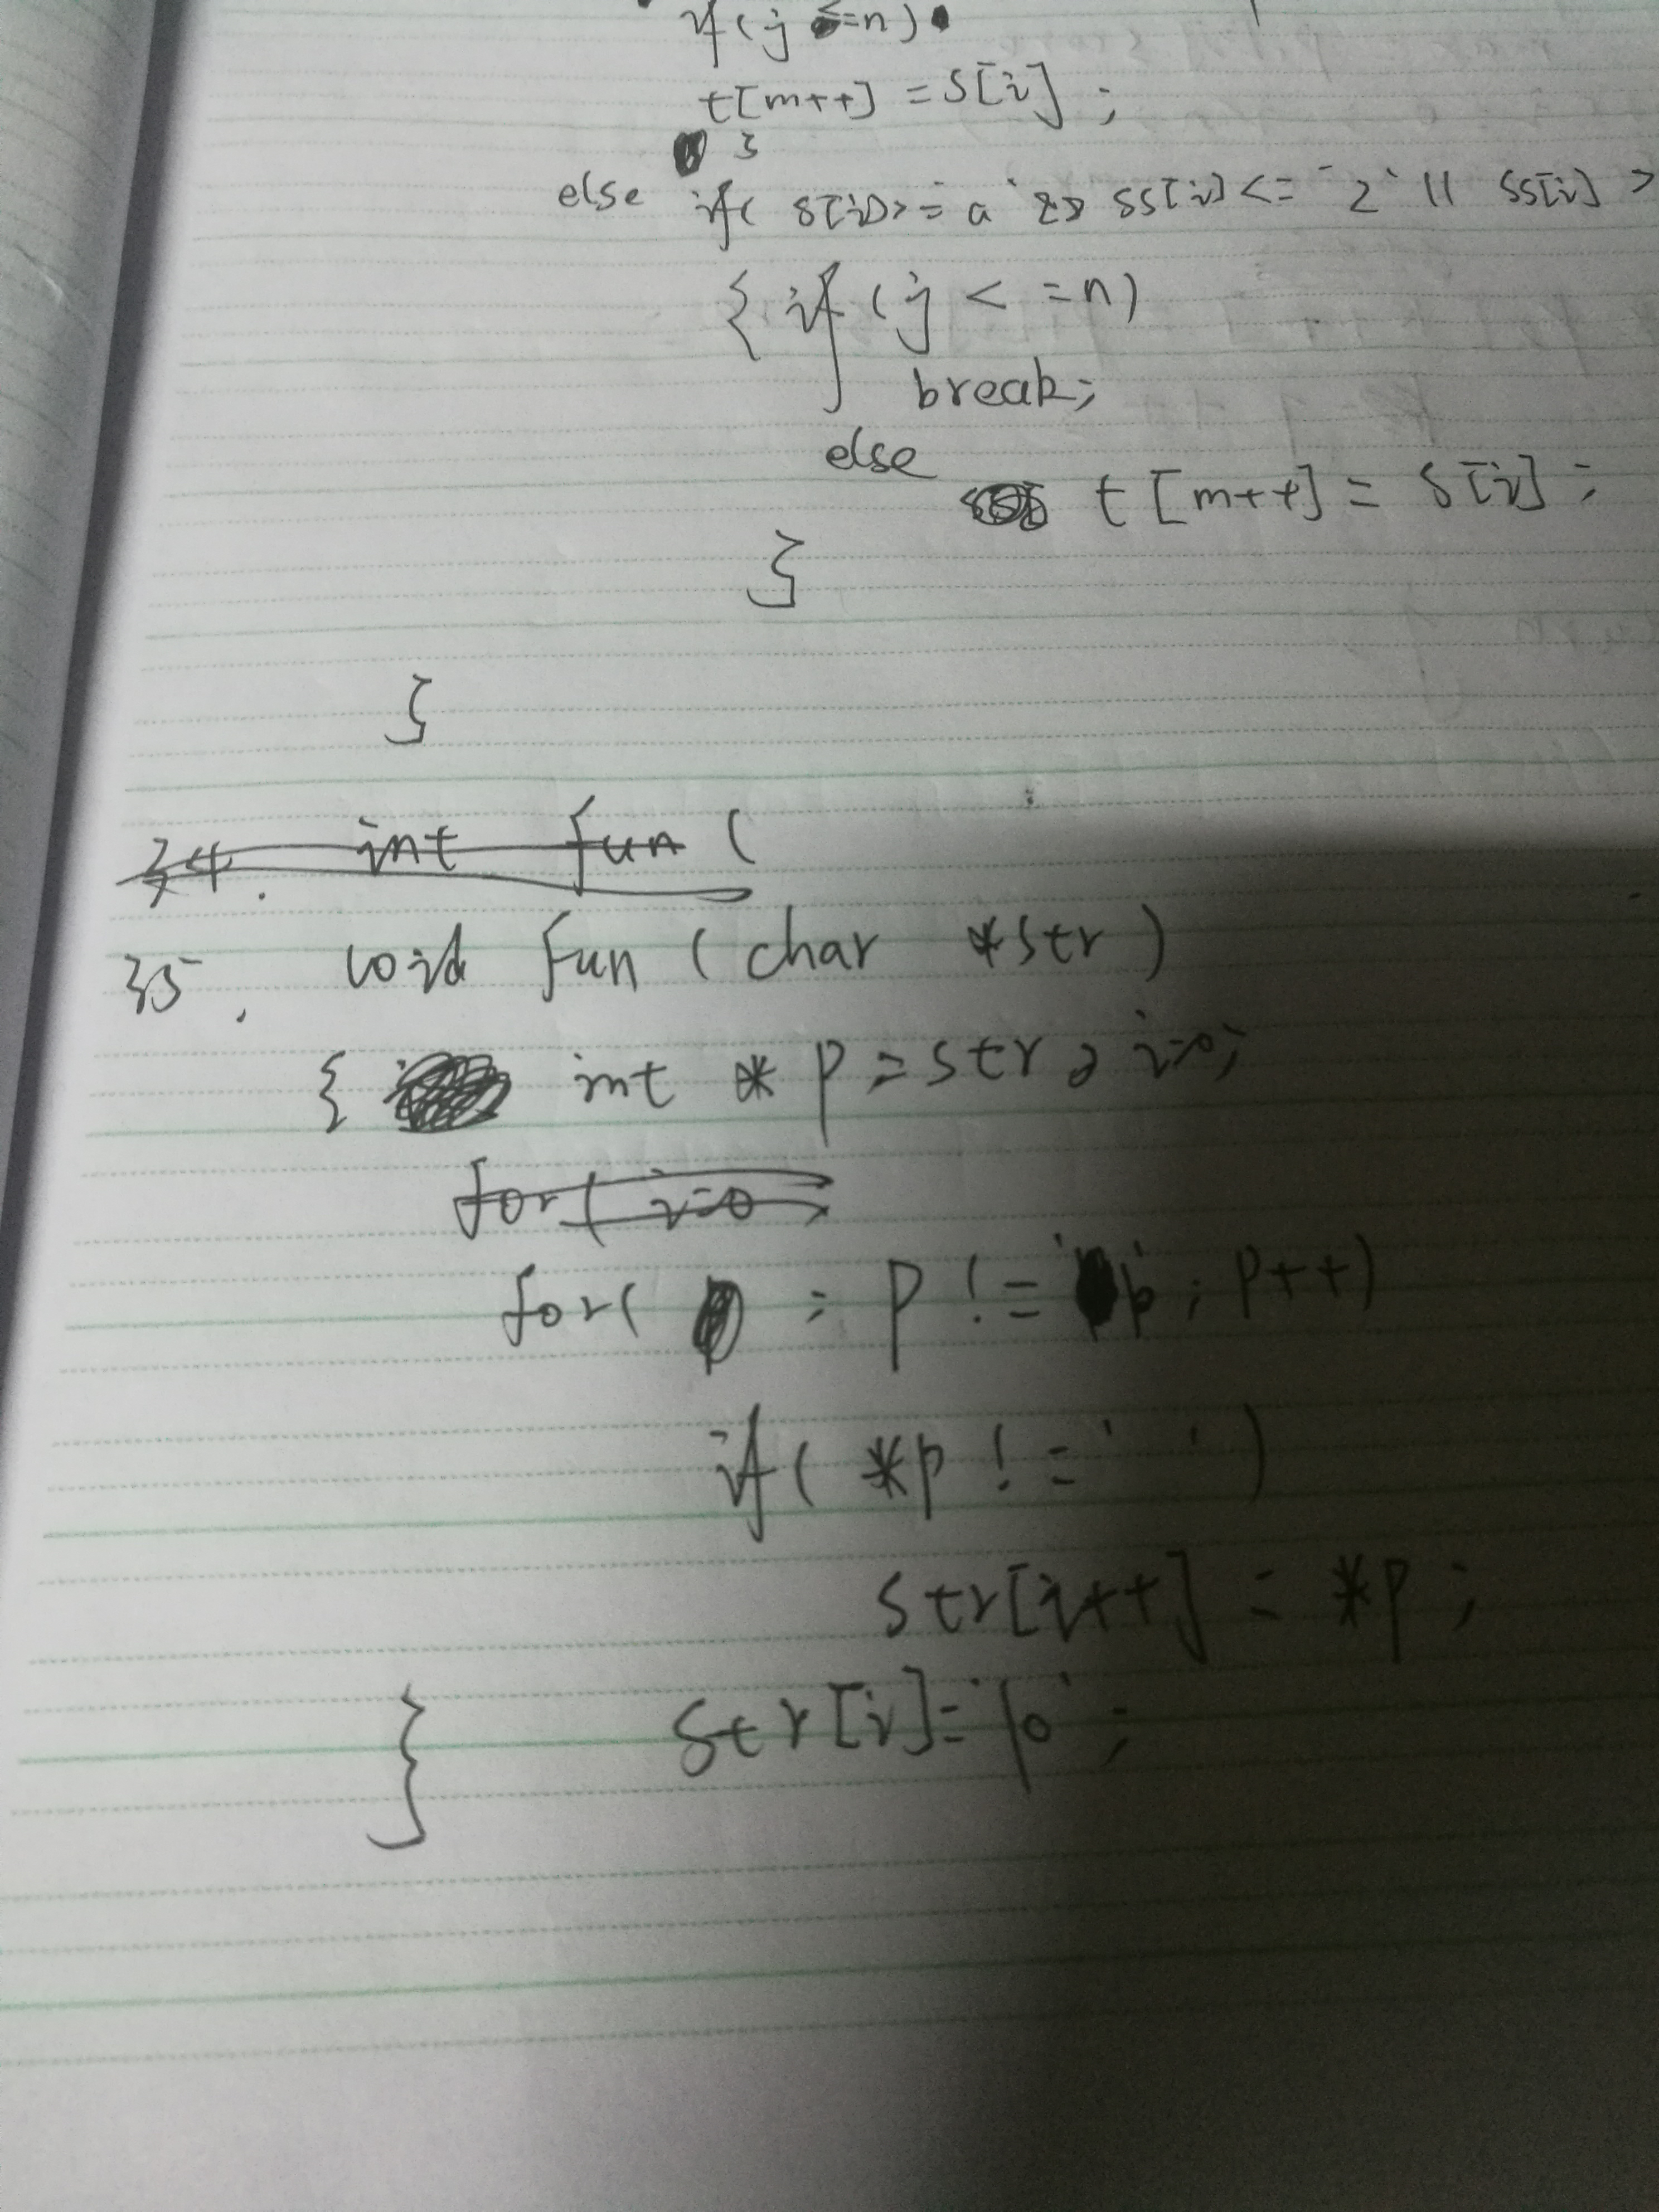 if(j<=n)
t[m++] =S[i] ;
}
else if( s[i]>= a' && ss[i]<= 'z' || ss[i] >
{ if (j < =n)
break;
else
t [m++] = s[i] ;
}
}
34. int fun (
35. void fun ( char *str )
{ int * p=str , i=0;
for( i=0
for( ; p != '\0' ; p++)
if( *p != ' ' )
str[i++] = *p ;
} str[i]='\0' ;